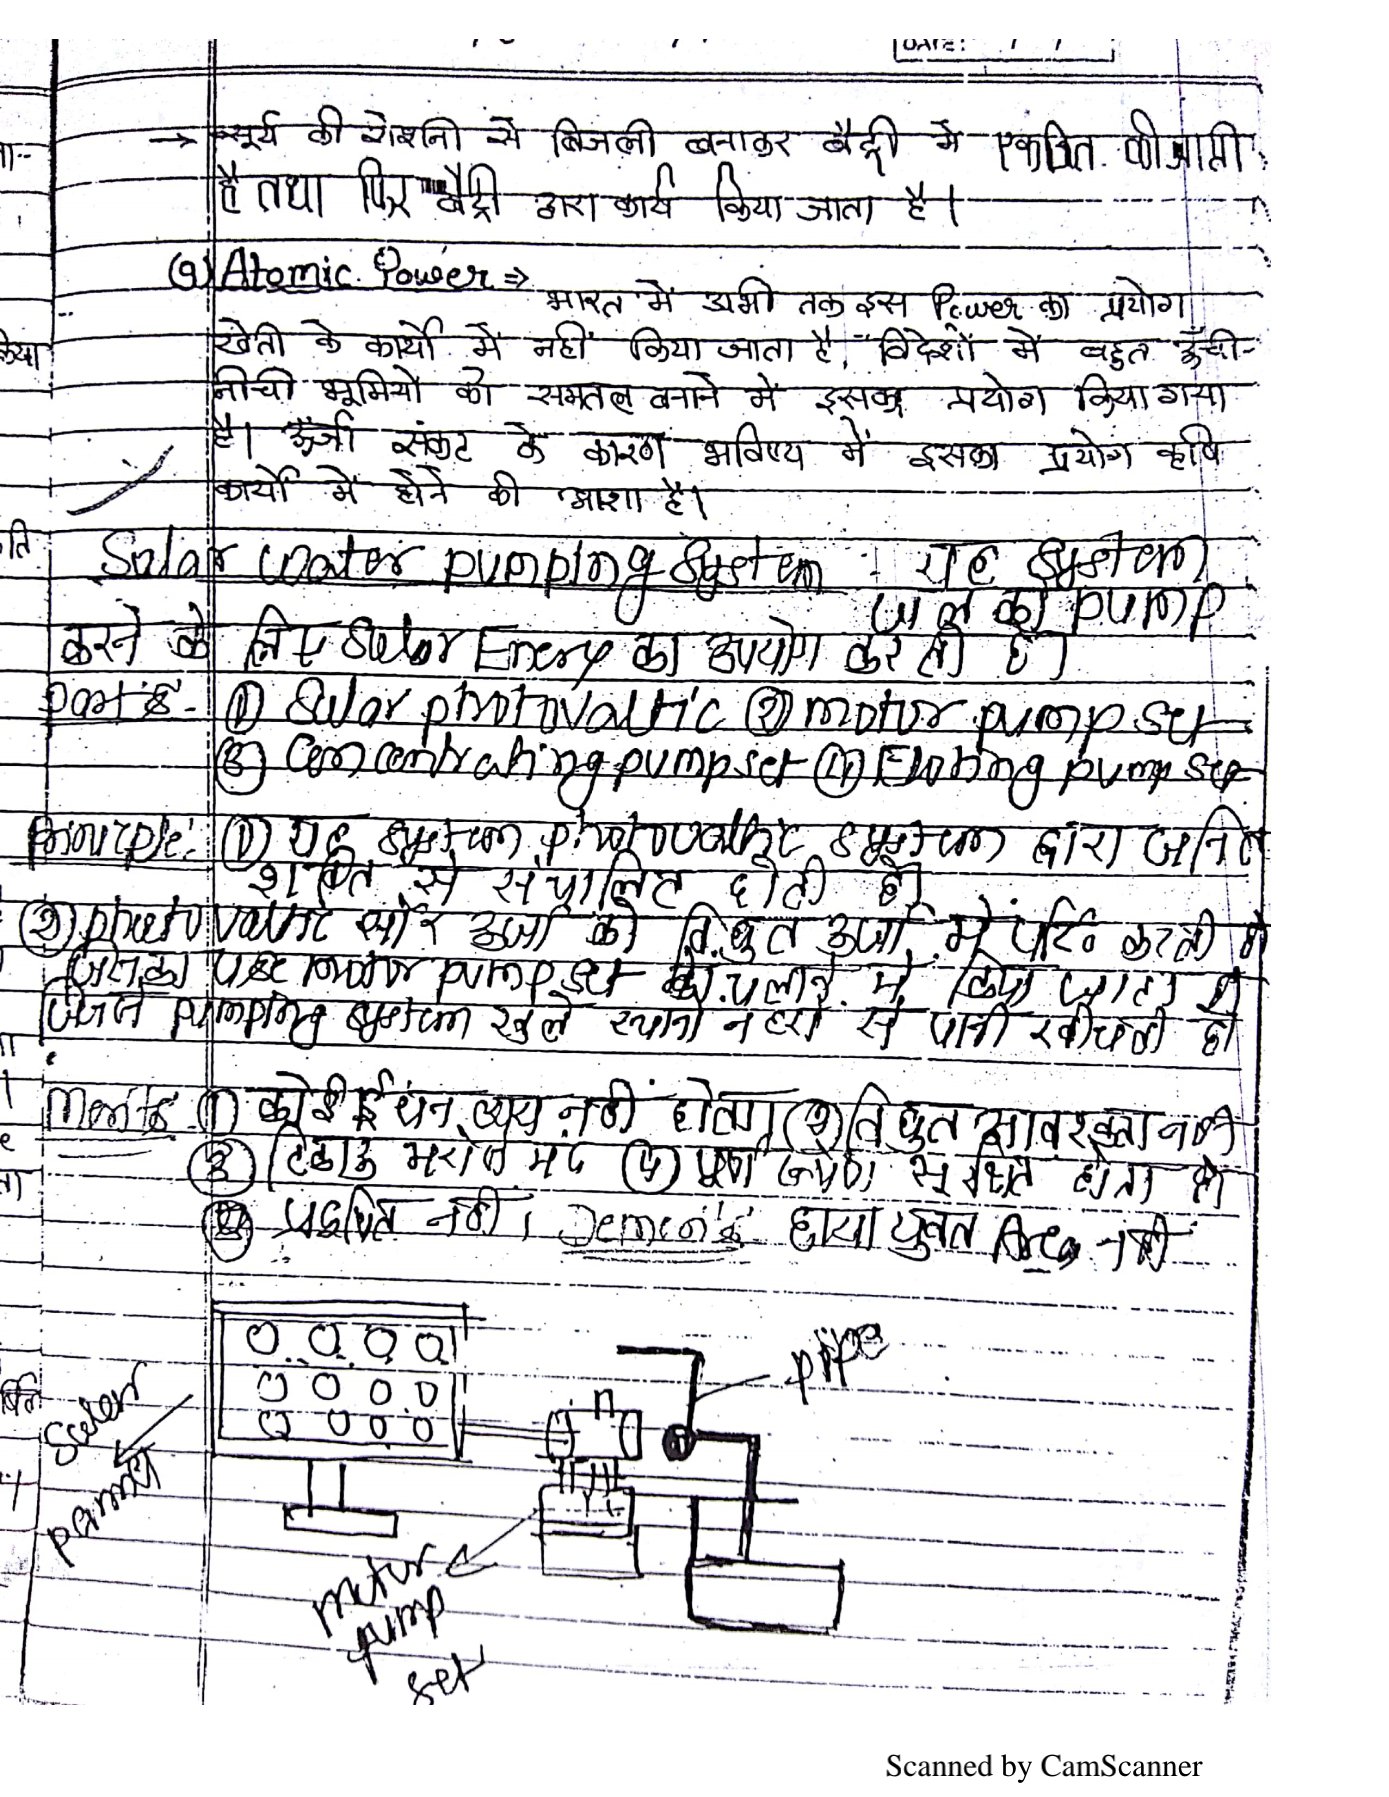 DATE: / /
→ सूर्य की रोशनी से बिजली बनाकर बैट्री में एकत्रित की जाती
है तथा फिर बैट्री द्वारा कार्य किया जाता है।
(9) Atomic Power ⇒
भारत में अभी तक इस Power का प्रयोग
खेती के कार्यो में नहीं किया जाता है, विदेशों में बहुत ऊँची-
नीची भूमियों को समतल बनाने में इसका प्रयोग किया गया
है। ऊर्जा संकट के कारण भविष्य में इसका प्रयोग कृषि
कार्यो में होने की आशा है।
Solar water pumping System : यह System
जल को pump
करने के लिए Solar Energy का उपयोग करती है।
parts - ① Solar photovaltic ② motor pump set
③ Concentrating pump set ④ Floting pump set
Principle: ① यह System photovaltic System द्वारा जनित
शक्ति से संचालित होती है।
② photovaltic सौर ऊर्जा को विधुत ऊर्जा में परि० करती है
जिसका motor pump set को चलाने में किया जाता है
जिससे pumping System खुले स्थानो नहरो से पानी खीचती है
Merits - ① कोई ईधन व्यय नही होता। ② विधुत आवश्कता नही
③ टिकाऊ ④ पूर्ण होता है
⑤ प्रदूषित नही। Demerits छाया युक्त Area नही
pipe
Solar
pannel
motor
pump
set
Scanned by CamScanner